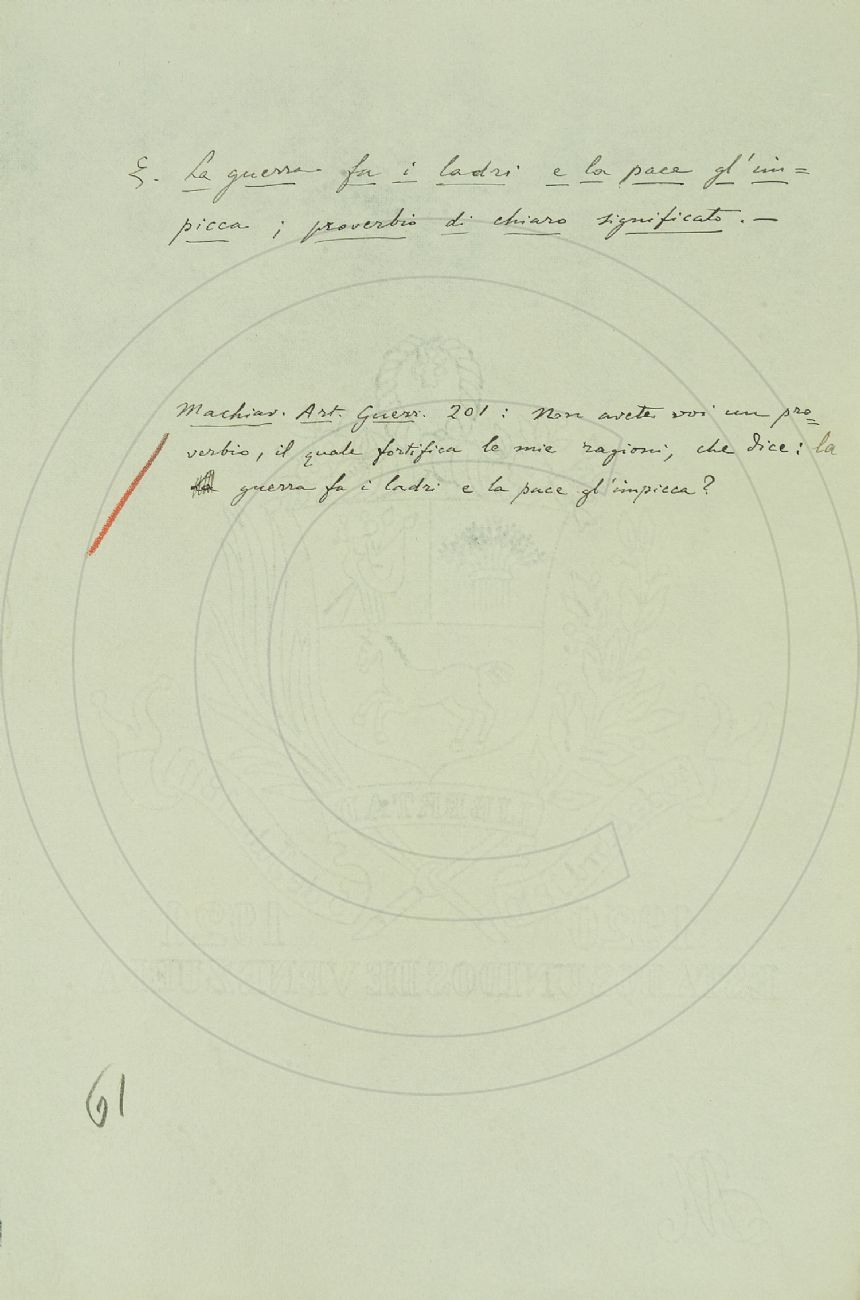 ξ. La guerra fa i ladri e la pace gl'im=
picca ; proverbio di chiaro significato. —
Machiav. Art. Guerr. 201 : Non avete voi un pro=
verbio, il quale fortifica le mie ragioni, che dice: la
guerra fa i ladri e la pace gl'impicca?
LIBERTAD
ESTADOS UNIDOS DE VENEZUELA
61